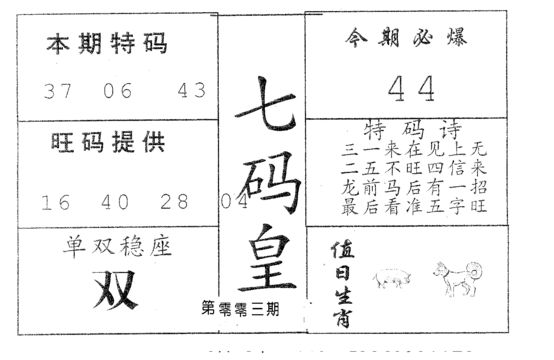 本期特码
37 06 43
旺码提供
16 40 28 04
单双稳座
双
七码皇
第零零三期
今期必爆
44
特码诗
三一来在见上无
二五不旺四信来
龙前马后有一招
最后看准五字旺
值日生肖